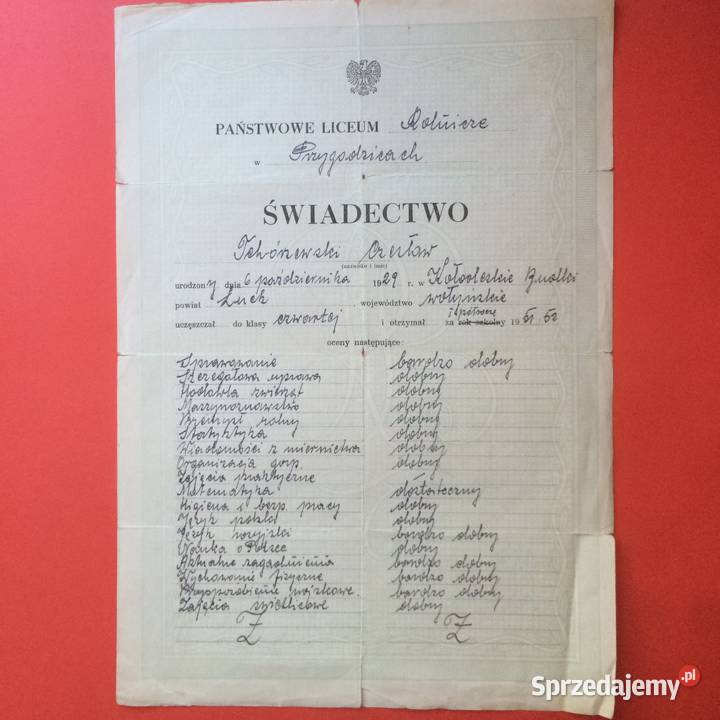 PAŃSTWOWE LICEUM Rolnicze
w Przygodzicach
ŚWIADECTWO
Tchórzewski Czesław
(nazwisko i imię)
urodzony dnia 6 października 1929 r. w
powiat Łuck, województwo wołyńskie
uczęszczał do klasy czwartej i otrzymał za I półrocze rok szkolny 1951.52
oceny następujące:
Sprawowanie bardzo dobry
Szczegółowa uprawa dobry
Hodowla zwierząt dobry
Maszynoznawstwo dobry
Przemysł rolny dobry
Statystyka dobry
Wiadomości z miernictwa dobry
Organizacja gosp. dobry
Zajęcia praktyczne –
Matematyka dostateczny
Higiena i bezp. pracy dobry
Język polski dobry
Język rosyjski bardzo dobry
Nauka o Polsce dobry
Aktualne zagadnienia bardzo dobry
Wychowanie fizyczne bardzo dobry
Przysposobienie wojskowe. bardzo dobry
Zajęcia świetlicowe dobry
Z Z
Sprzedajemy.pl